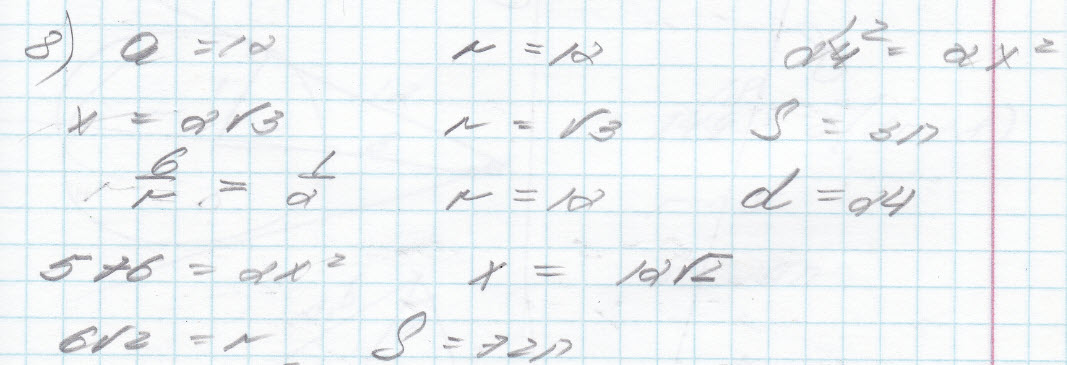 8) a = 12 r = 12 24² = 2x²
x = 2√3 r = √3 S = 3π
6/r = 1/2 r = 12 d = 24
576 = 2x² x = 12√2
6√2 = r S = 72π